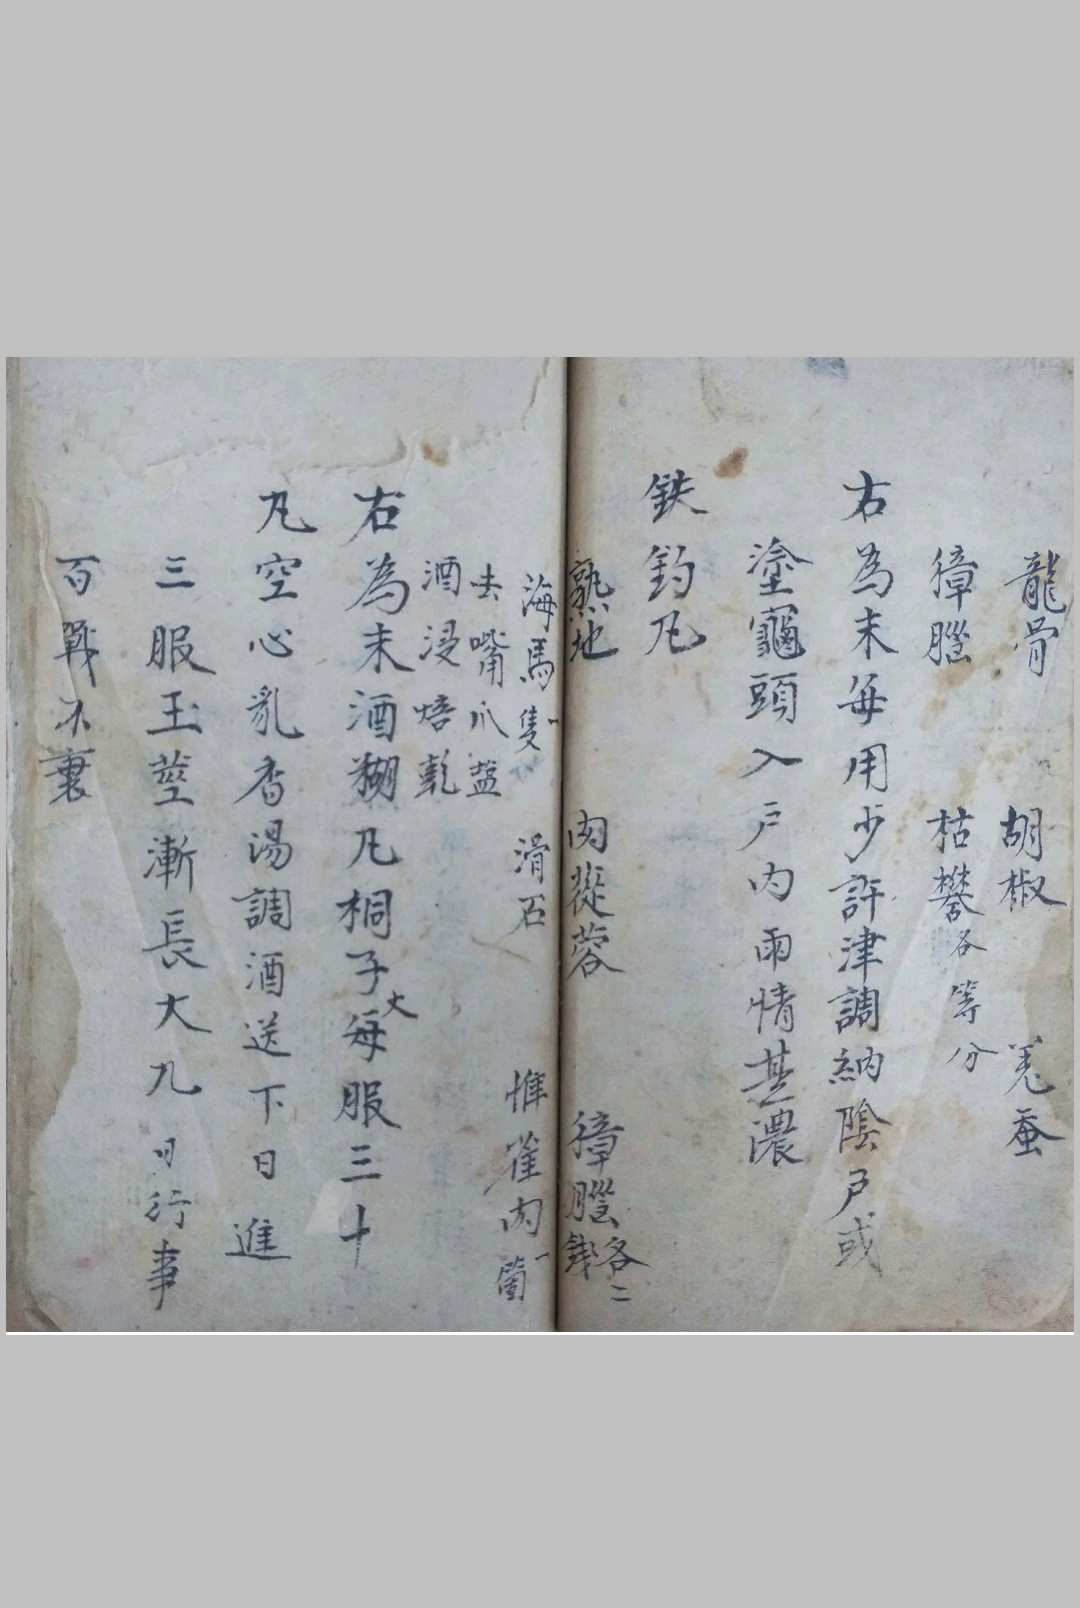 龍骨　胡椒　羌蚕
獐腦　枯礬各等分
右為末每用少許津調納陰戸或
塗龜頭入戸内雨情甚濃
鉄釣凡
熟地　肉蓯蓉　獐腦各二錢
海馬一隻　滑石　惟雀肉一箇
去嘴爪盐
酒浸焙乾
右為末酒糊凡桐子大每服三十
凡空心乳香湯調酒送下日進
三服玉莖漸長大九日行事
百戰不衰